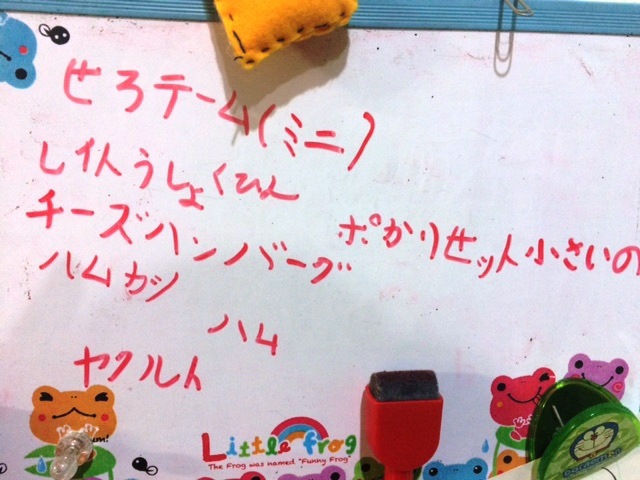 せろテーム(ミニ)
しょくひん
チーズハンバーグ
ポかりセット小さいの
ハムカツ
ハム
ヤクルト
Little frog
The Frog was named "Funny Frog"